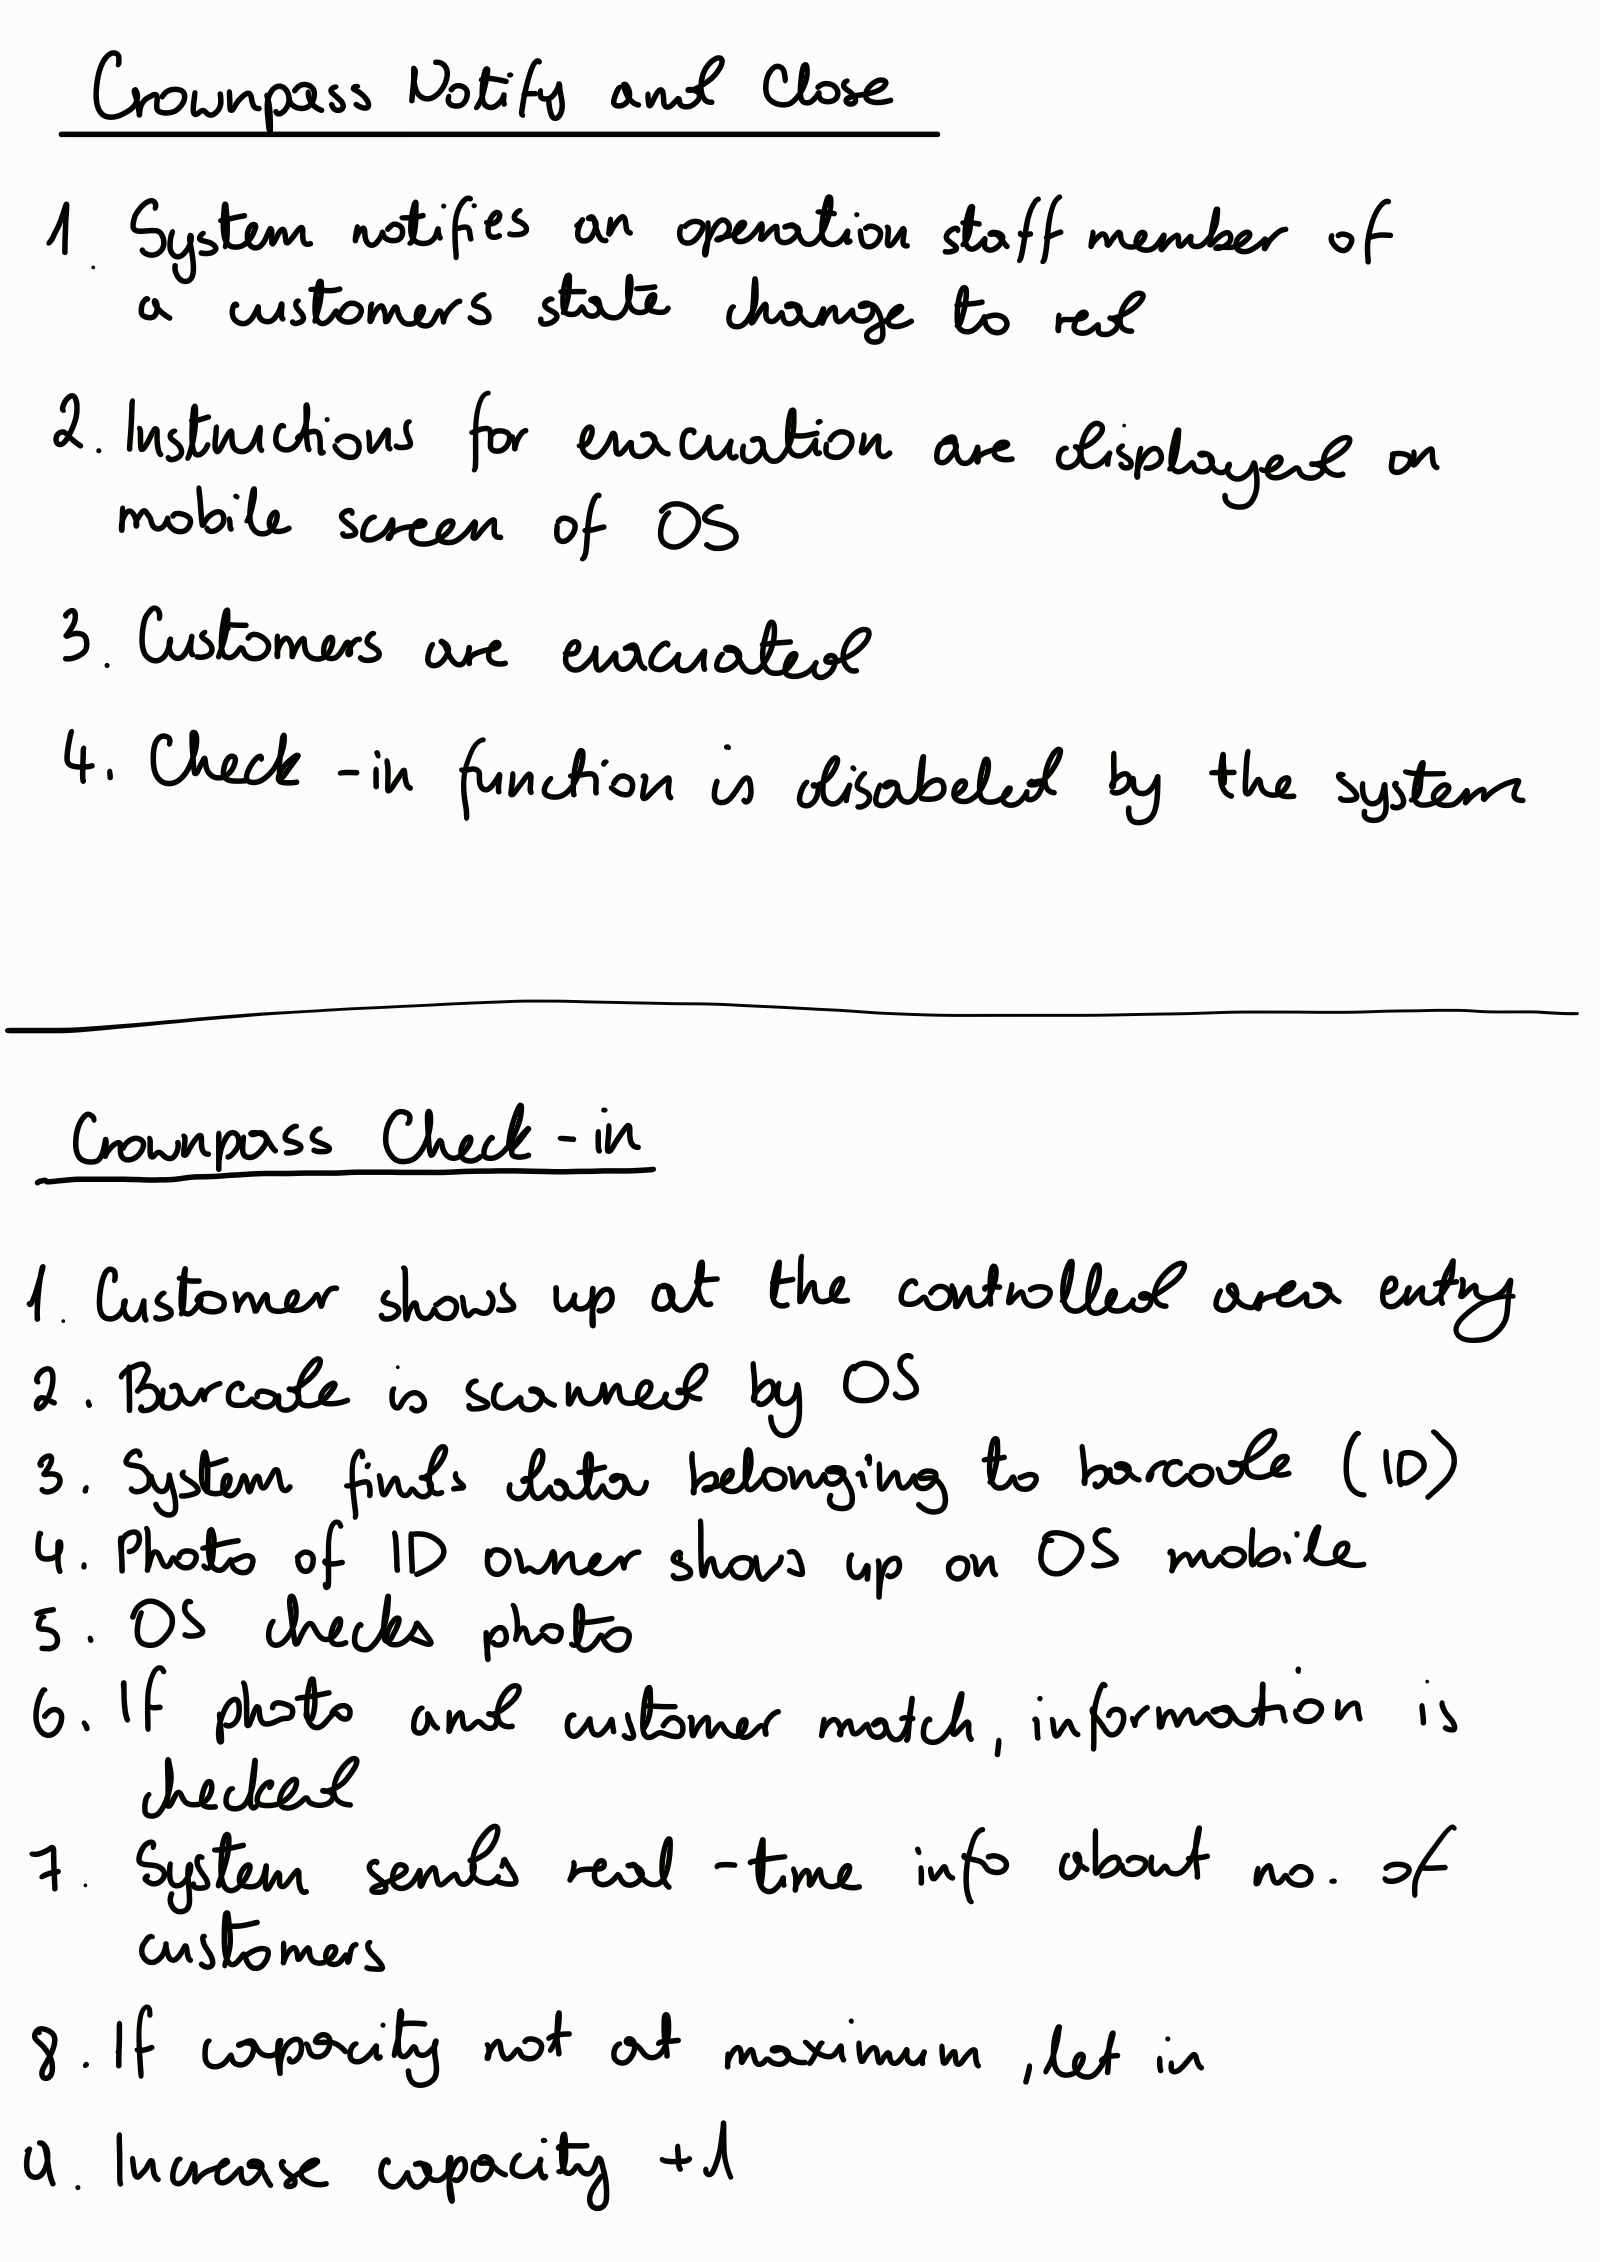 Crownpass Notify and Close
1. System notifies an operation staff member of
a customers state change to red
2. Instructions for evacuation are displayed on
mobile screen of OS
3. Customers are evacuated
4. Check-in function is disabeled by the system
Crownpass Check-in
1. Customer shows up at the controlled area entry
2. Barcode is scanned by OS
3. System finds data belonging to barcode (ID)
4. Photo of ID owner shows up on OS mobile
5. OS checks photo
6. If photo and customer match, information is
checked
7. System sends real-time info about no. of
customers
8. If capacity not at maximum, let in
9. Increase capacity +1